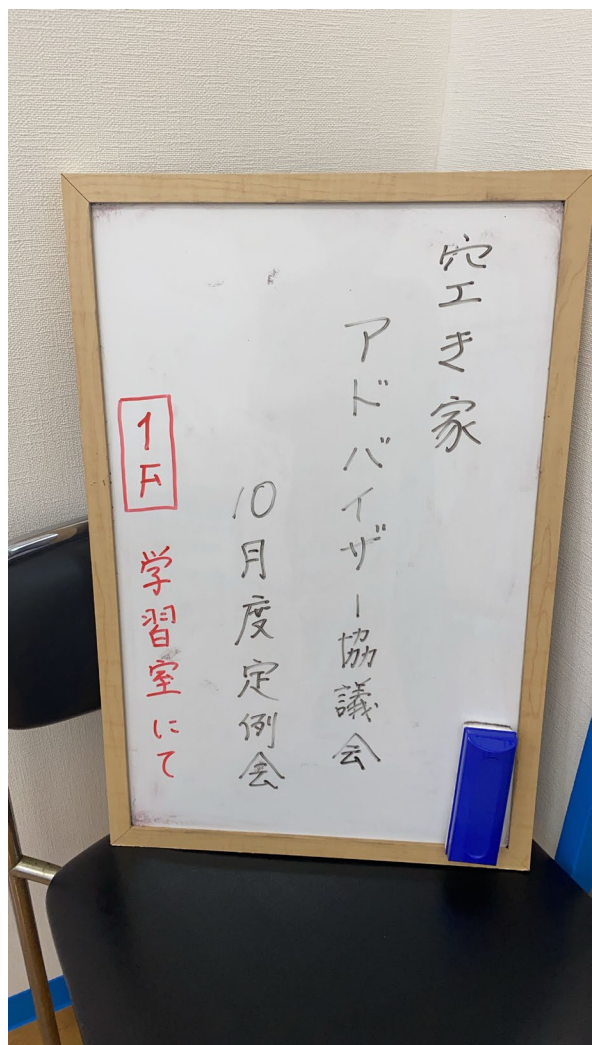 空き家
アドバイザー協議会
10月度定例会
1F 学習室にて